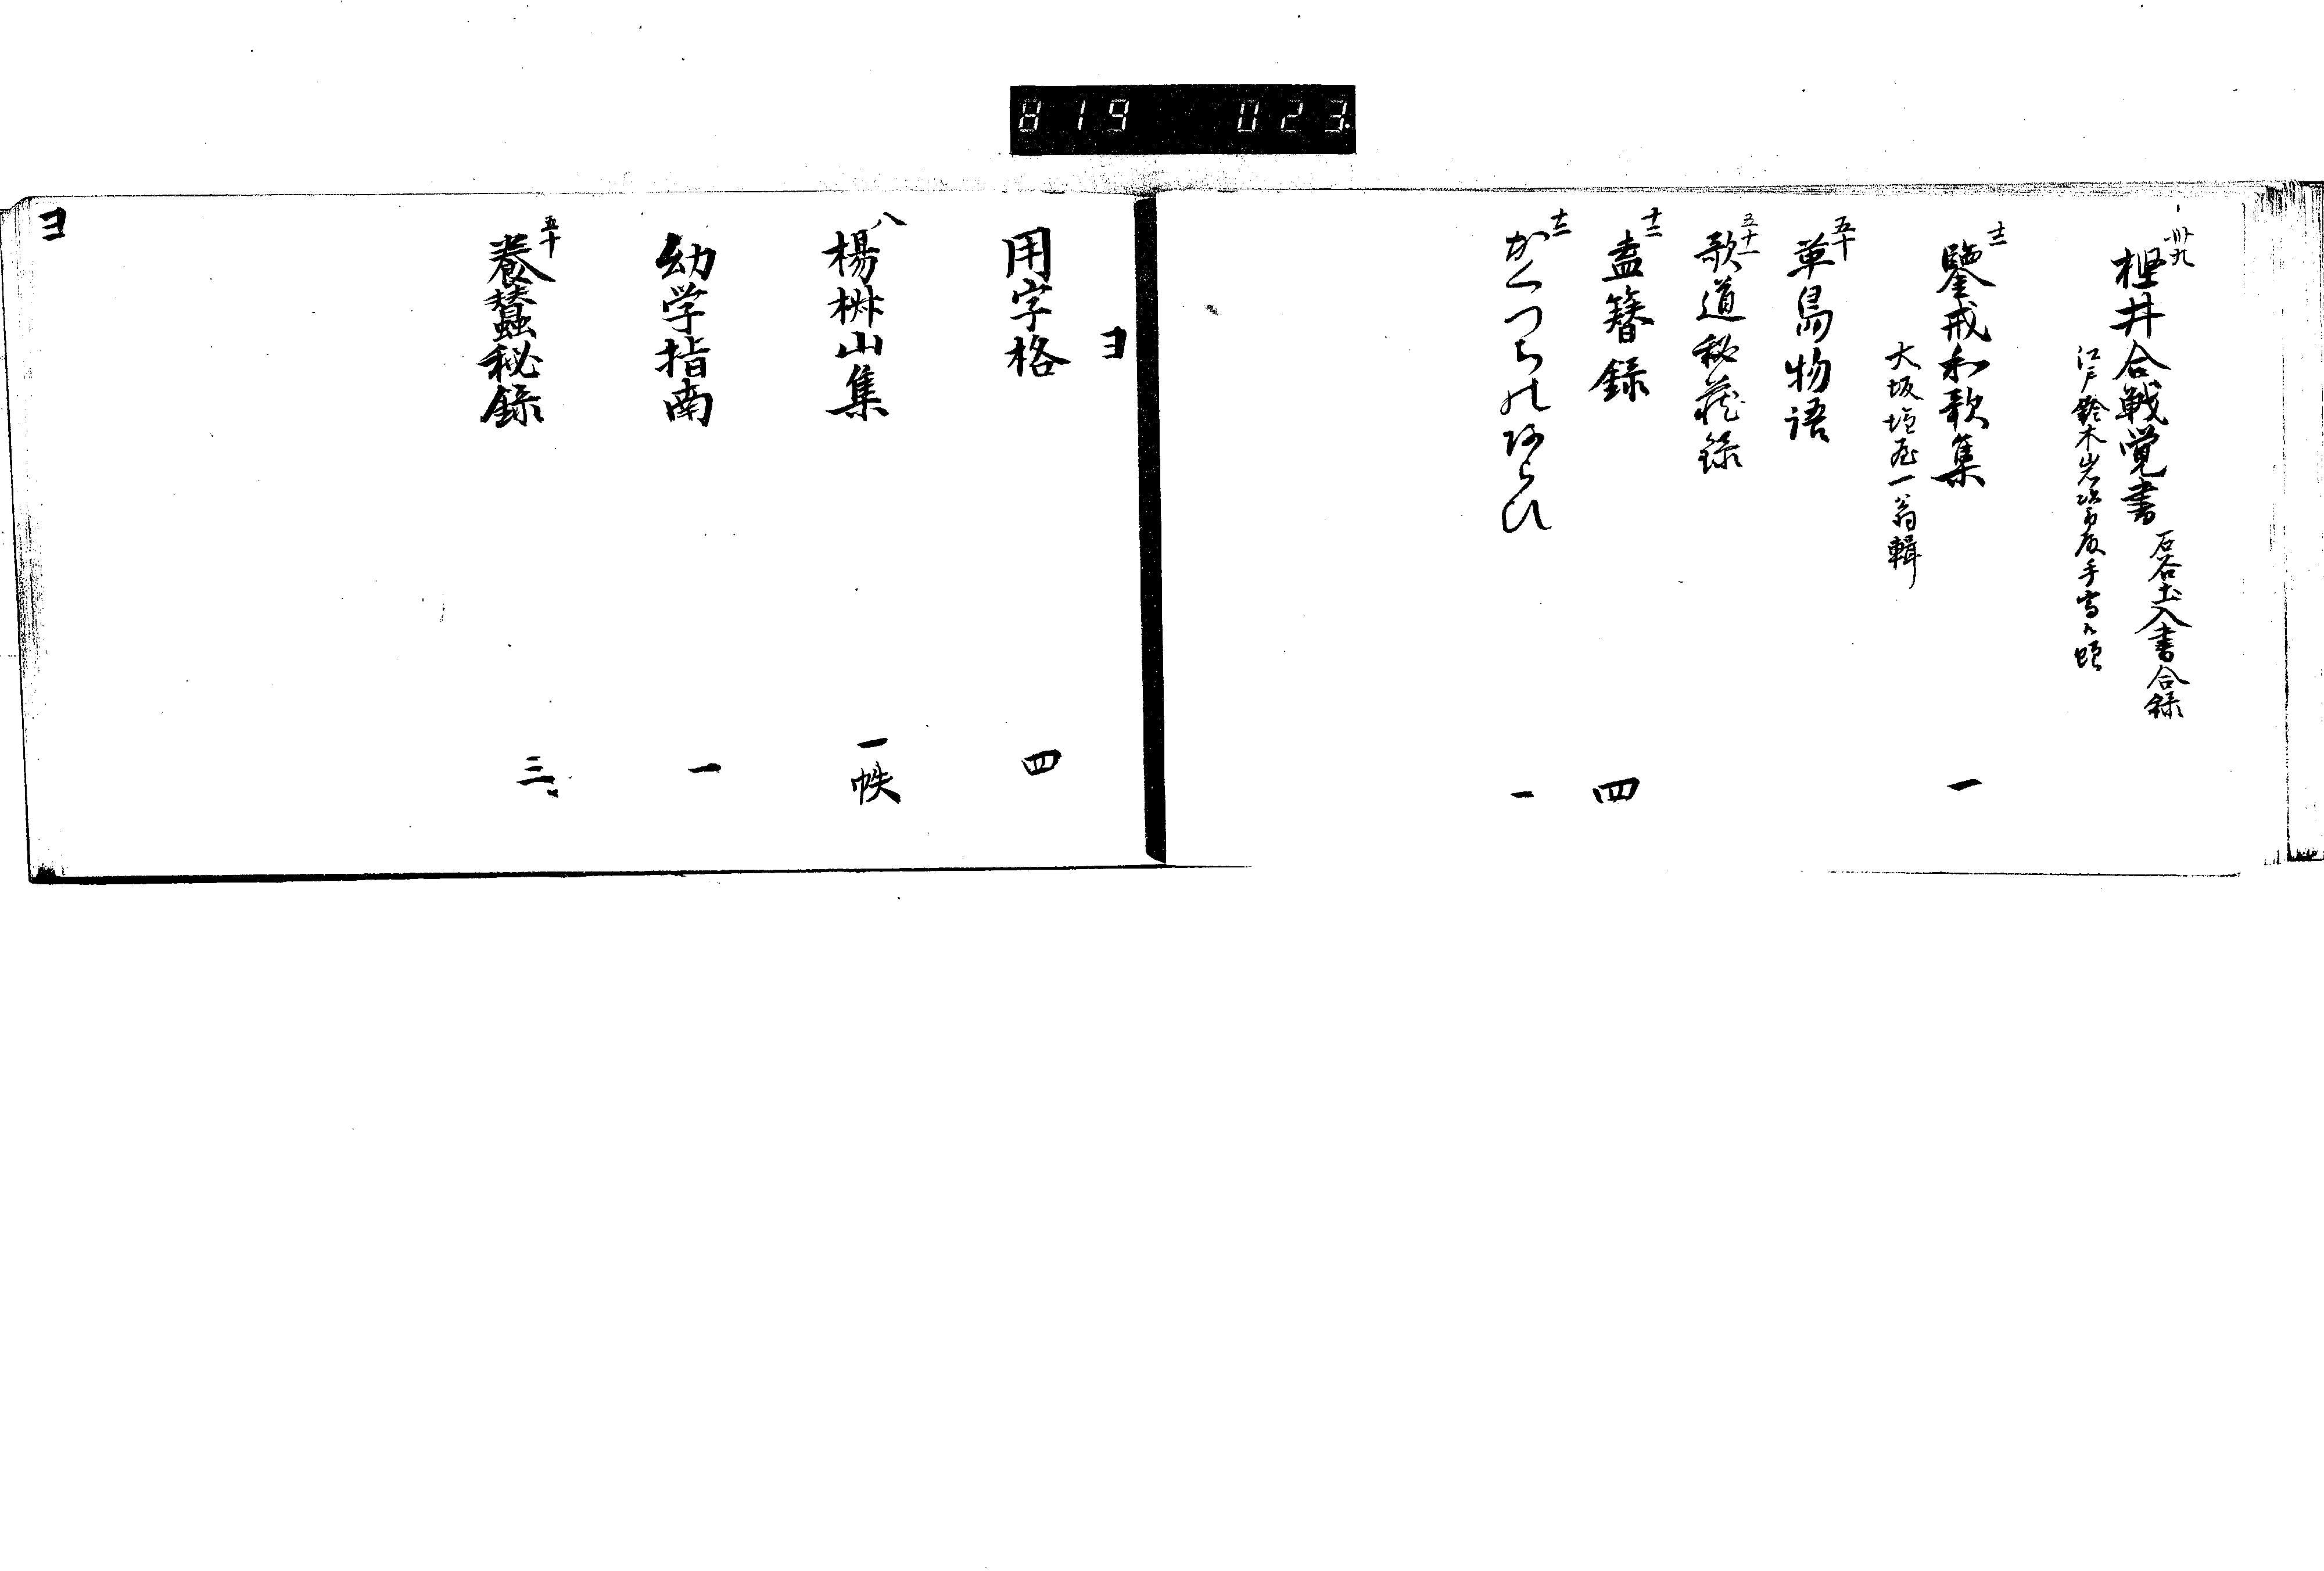 819 023
卅九
樫井合戦覚書
石谷土入書合録
江戸鈴木岩次郎殿手写之
十二
鑒戒和歌集 一
大坂塩屋一翁輯
五十
草島物語
五十一
歌道秘蔵録
十二
盍簪録 四
十二
かくつちのあらひ 一
ヨ
用字格 四
八
楊椒山集 一帙
幼学指南 一
五十
養蚕秘録 三
ヨ